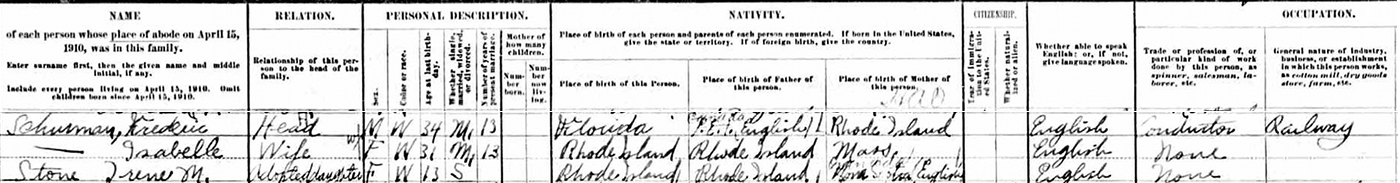 NAME RELATION. PERSONAL DESCRIPTION. NATIVITY. CITIZENSHIP. OCCUPATION.
of each person whose place of abode on April 15, 1910, was in this family.
Enter surname first, then the given name and middle initial, if any.
Include every person living on April 15, 1910. Omit children born since April 15, 1910.
Relationship of this person to the head of the family.
Sex.
Color or race.
Age at last birthday.
Whether single, married, widowed, or divorced.
Number of years of present marriage.
Mother of how many children.
Number born.
Number now living.
Place of birth of each person and parents of each person enumerated. If born in the United States, give the state or territory. If of foreign birth, give the country.
Place of birth of this Person.
Place of birth of Father of this person.
Place of birth of Mother of this person.
Year of immigration to the United States.
Whether naturalized or alien.
Whether able to speak English; or, if not, give language spoken.
Trade or profession of, or particular kind of work done by this person, as spinner, salesman, laborer, etc.
General nature of industry, business, or establishment in which this person works, as cotton mill, dry goods store, farm, etc.
Schurman, Frederic Head M W 34 M1 13 Florida P.E.I. English Rhode Island English Conductor Railway
— Isabelle Wife F W 31 M1 13 Rhode Island Rhode Island Mass. English None
Stone Irene M. Adopted daughter F W 13 S Rhode Island Rhode Island English English None